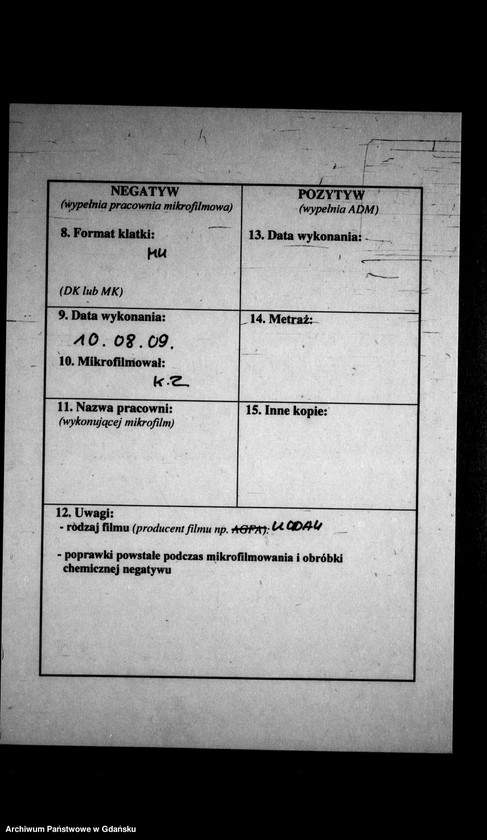 NEGATYW
(wypełnia pracownia mikrofilmowa)
8. Format klatki:
MK
(DK lub MK)
9. Data wykonania:
10.08.09.
10. Mikrofilmował:
K.Z
11. Nazwa pracowni:
(wykonującej mikrofilm)
POZYTYW
(wypełnia ADM)
13. Data wykonania:
14. Metraż:
15. Inne kopie:
12. Uwagi:
- rodzaj filmu (producent filmu np. AGFA): KODAK
- poprawki powstałe podczas mikrofilmowania i obróbki
chemicznej negatywu
Archiwum Państwowe w Gdańsku